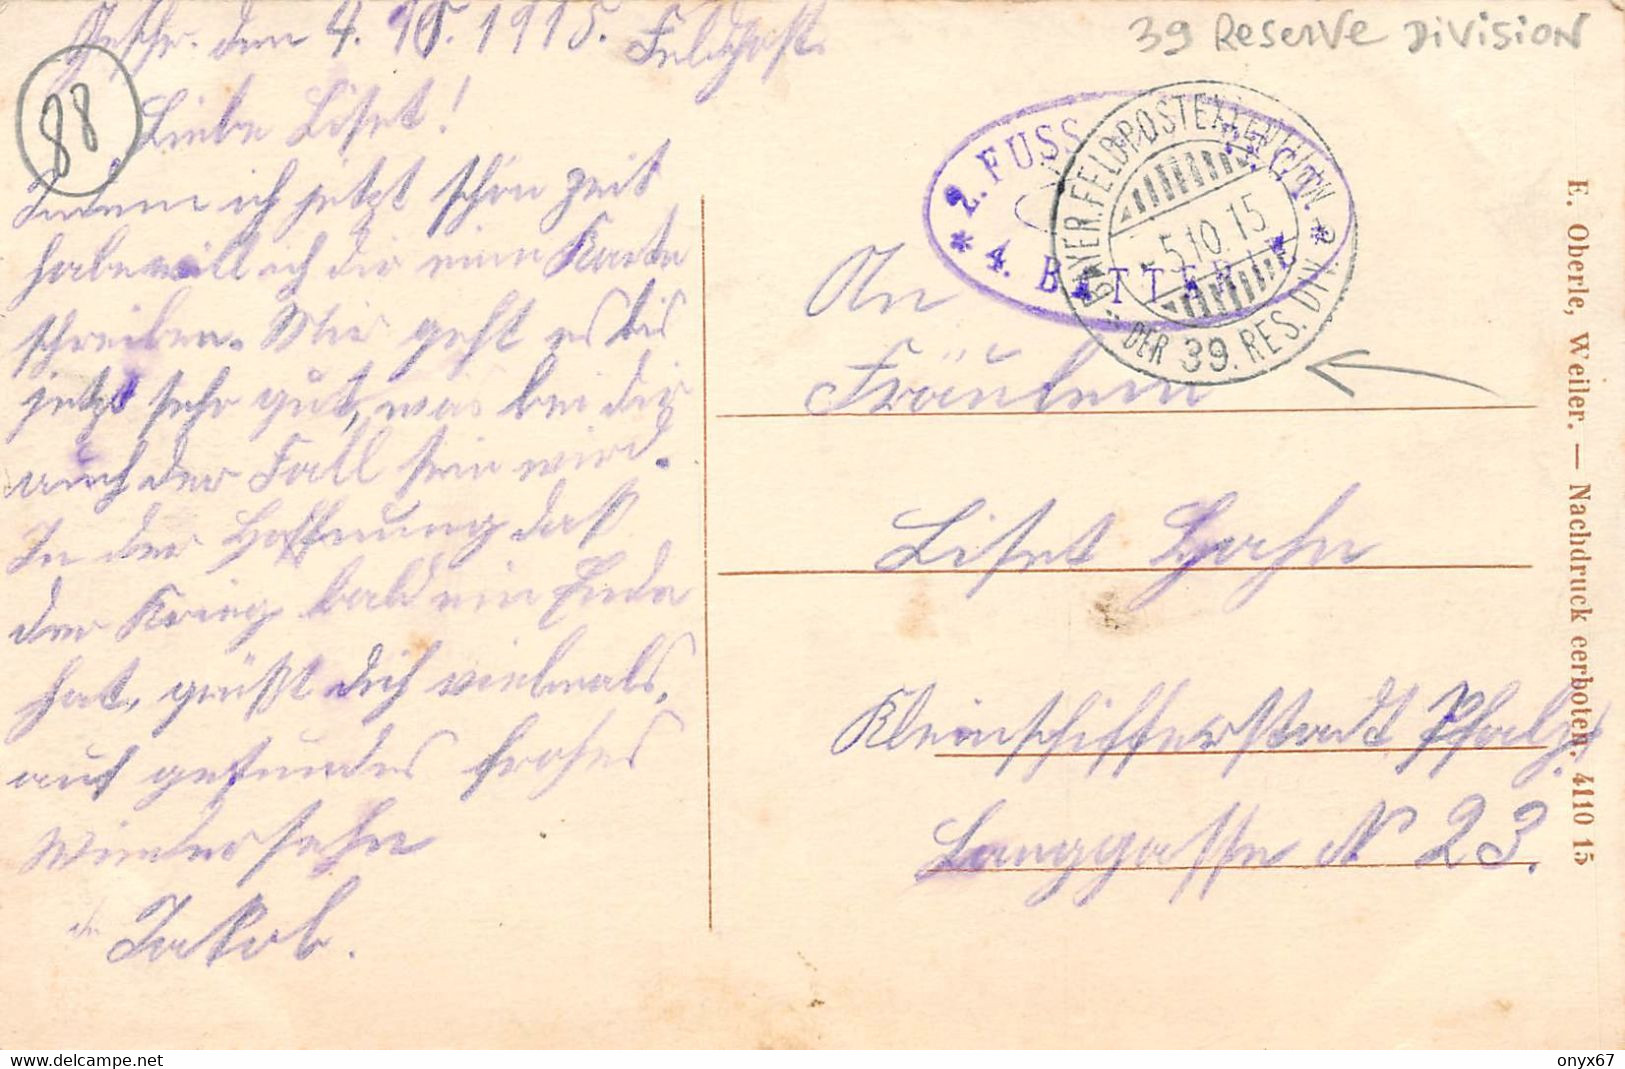 den 4. 10. 1915. Feldpost.
Liebe Liset!
Indem ich jetzt schon Zeit
habe will ich dir eine Karte
schreiben. Mir geht es bis
jetzt sehr gut, was bei dir
auch der Fall sein wird.
In der Hoffnung daß
der Krieg bald ein Ende
hat, grüßt dich vielmals,
auf gesundes frohes
Wiedersehn
Jakob.
88
39 Reserve Division
2. FUSS
* 4. BATTERIE *
BAYER. FELDPOSTEXPEDITION
5.10.15
DER 39. RES. DIV.
An
Fräulein
Liset Hahn
Kleinschifferstadt Pfalz
Langgasse N 23.
E. Oberle, Weiler. — Nachdruck verboten. 4110 15
onyx67